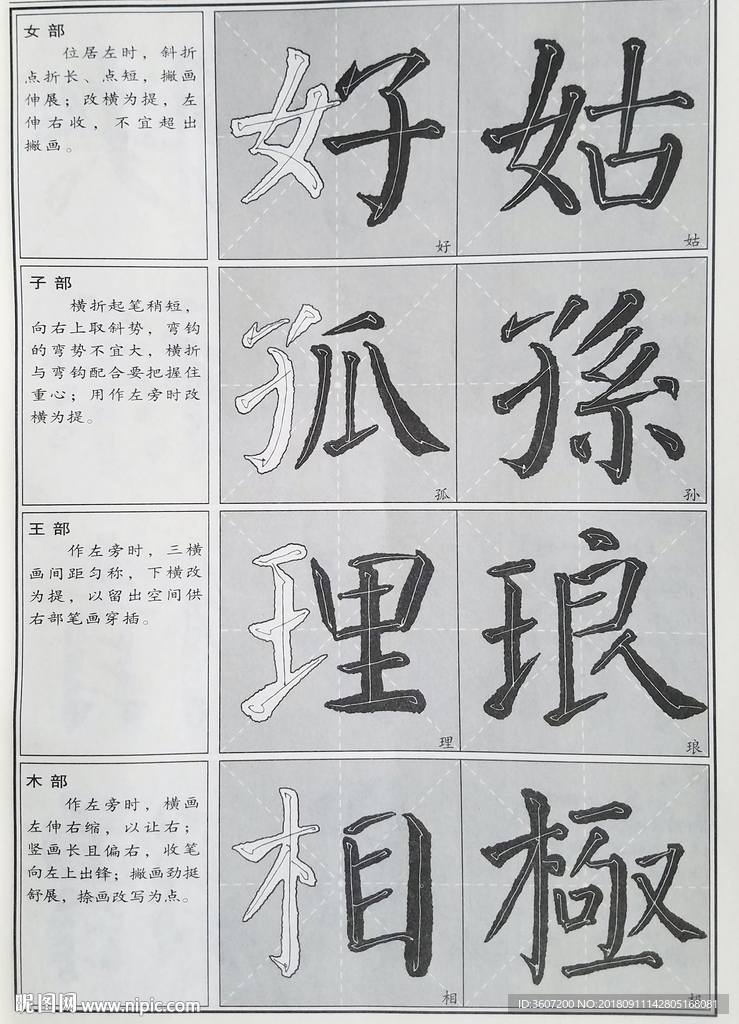 女部
位居左时，斜折
点折长、点短，撇画
伸展；改横为提，左
伸右收，不宜超出
撇画。
好 姑
好 姑
子部
横折起笔稍短，
向右上取斜势，弯钩
的弯势不宜大，横折
与弯钩配合要把握住
重心；用作左旁时改
横为提。
孤 孫
孤 孙
王部
作左旁时，三横
画间距匀称，下横改
为提，以留出空间供
右部笔画穿插。
理 琅
理 琅
木部
作左旁时，横画
左伸右缩，以让右；
竖画长且偏右，收笔
向左上出锋；撇画劲挺
舒展，捺画改写为点。
相 極
相
昵图网 www.nipic.com
ID:3607200 NO:20180911142805168081